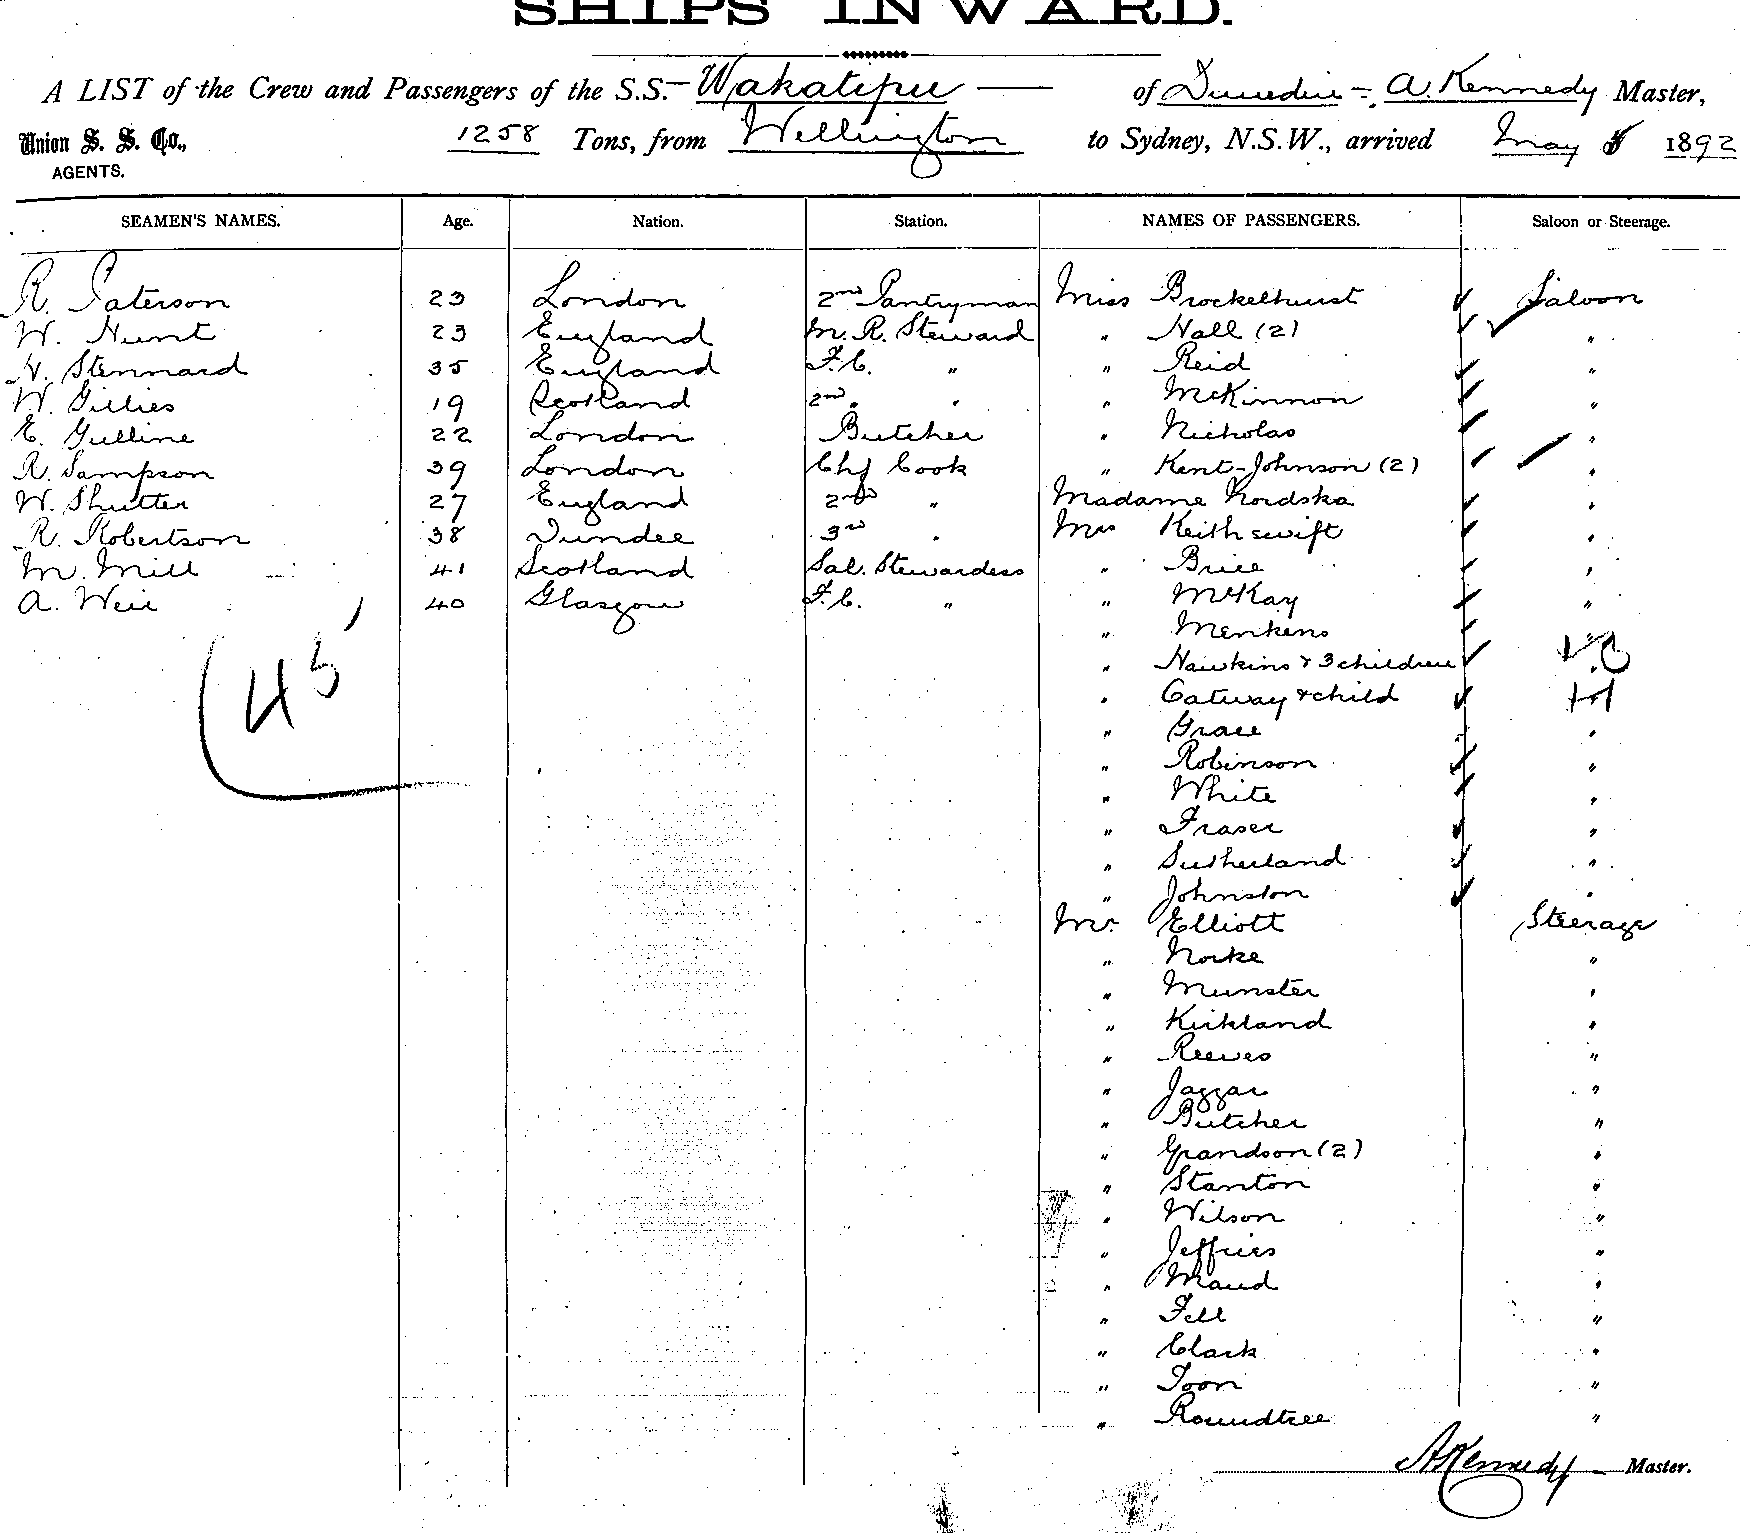 SHIPS INWARD.
A LIST of the Crew and Passengers of the S.S. Wakatipu of Dunedin - A. Kennedy Master,
Union S. S. Co., 1258 Tons, from Wellington to Sydney, N.S.W., arrived May 1892
AGENTS.
SEAMEN'S NAMES. Age. Nation. Station. NAMES OF PASSENGERS. Saloon or Steerage.
R. Paterson 23 London 2nd Pantryman Miss Brockelhurst Saloon
W. Hunt 23 England M. R. Steward " Hall (2) "
H. Stennard 35 England F.C. " " Reid "
W. Gillies 19 Scotland 2nd " " " McKinnon "
E. Gulline 22 London Butcher " Nicholas "
R. Sampson 39 London Chf Cook " Kent-Johnson (2) "
W. Shutter 27 England 2nd " Madame Nordska "
R. Robertson 38 Dundee 3rd " Mrs Keith swift "
M. Mill 41 Scotland Sal. Stewardess " Brice "
A. Weir 40 Glasgow F.C. " " McKay "
" Menkens
45 " Hawkins & 3 children "
" Gatway & child
" Grace "
" Robinson "
" White "
" Fraser "
" Sutherland "
" Johnston "
Mr. Elliott Steerage
" Norke "
" Munster "
" Kirkland "
" Reeves "
" Jaggar "
" Butcher "
" Grandson (2) "
" Stanton "
" Wilson "
" Jeffries "
" Maud "
" Fell "
" Clark "
" Toon "
" Roundtree "
A Kennedy Master.